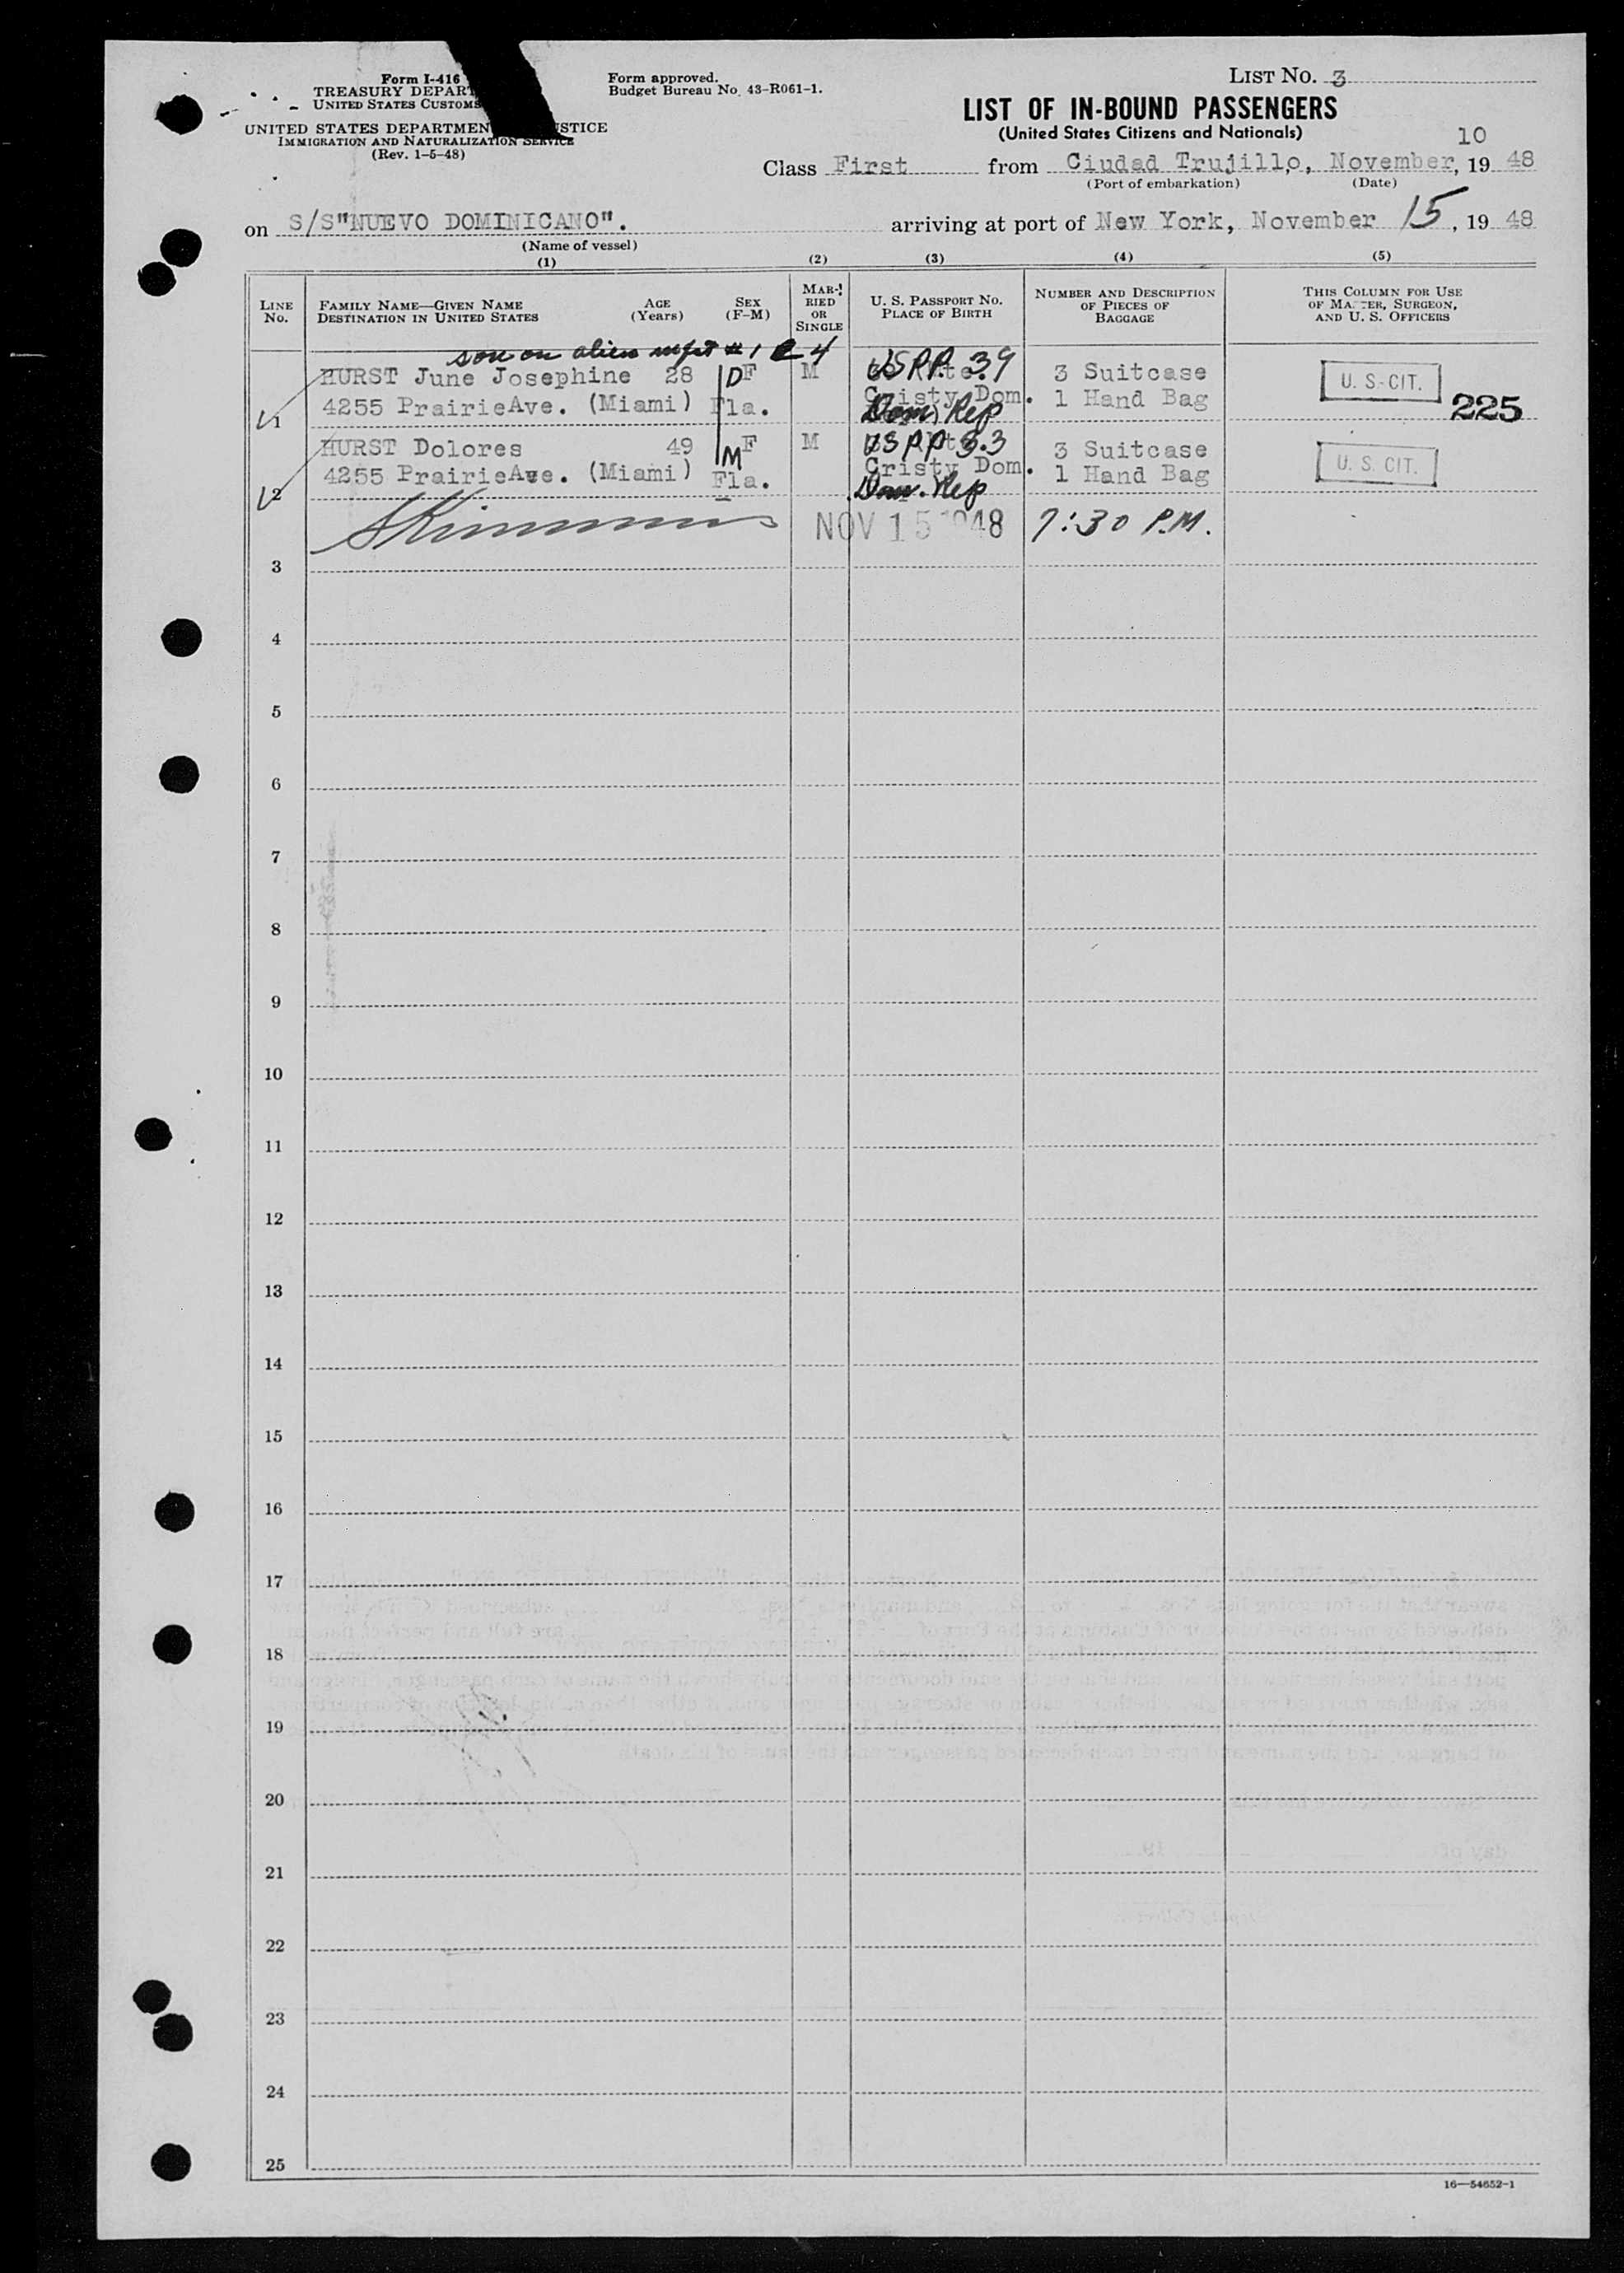 Form I-416
TREASURY DEPART
UNITED STATES CUSTOMS
UNITED STATES DEPARTMEN STICE
IMMIGRATION AND NATURALIZATION SERVICE
(Rev. 1-5-48)
Form approved.
Budget Bureau No. 43-R061-1.
LIST NO. 3
LIST OF IN-BOUND PASSENGERS
(United States Citizens and Nationals)
10
Class First from Ciudad Trujillo, November, 19 48
(Port of embarkation) (Date)
on S/S"NUEVO DOMINICANO". arriving at port of New York, November 15, 19 48
(Name of vessel)
(1) (2) (3) (4) (5)
LINE NO.
FAMILY NAME—GIVEN NAME
DESTINATION IN UNITED STATES
AGE (Years)
SEX (F-M)
MARRIED OR SINGLE
U. S. PASSPORT NO.
PLACE OF BIRTH
NUMBER AND DESCRIPTION
OF PIECES OF
BAGGAGE
THIS COLUMN FOR USE
OF MASTER, SURGEON,
AND U. S. OFFICERS
son on alien mfst # 1 4
HURST June Josephine 28 D F M USPP. 39 3 Suitcase U. S. CIT.
1 4255 PrairieAve. (Miami) Fla. Cristy Dom. 1 Hand Bag 225
Dom. Rep
HURST Dolores 49 M F M USPP 3 Suitcase U. S. CIT.
2 4255 PrairieAve. (Miami) Fla. Cristy Dom. 1 Hand Bag
Dom. Rep
NOV 15 1948 7:30 P.M.
3
4
5
6
7
8
9
10
11
12
13
14
15
16
17
18
19
20
21
22
23
24
25
16—54652-1